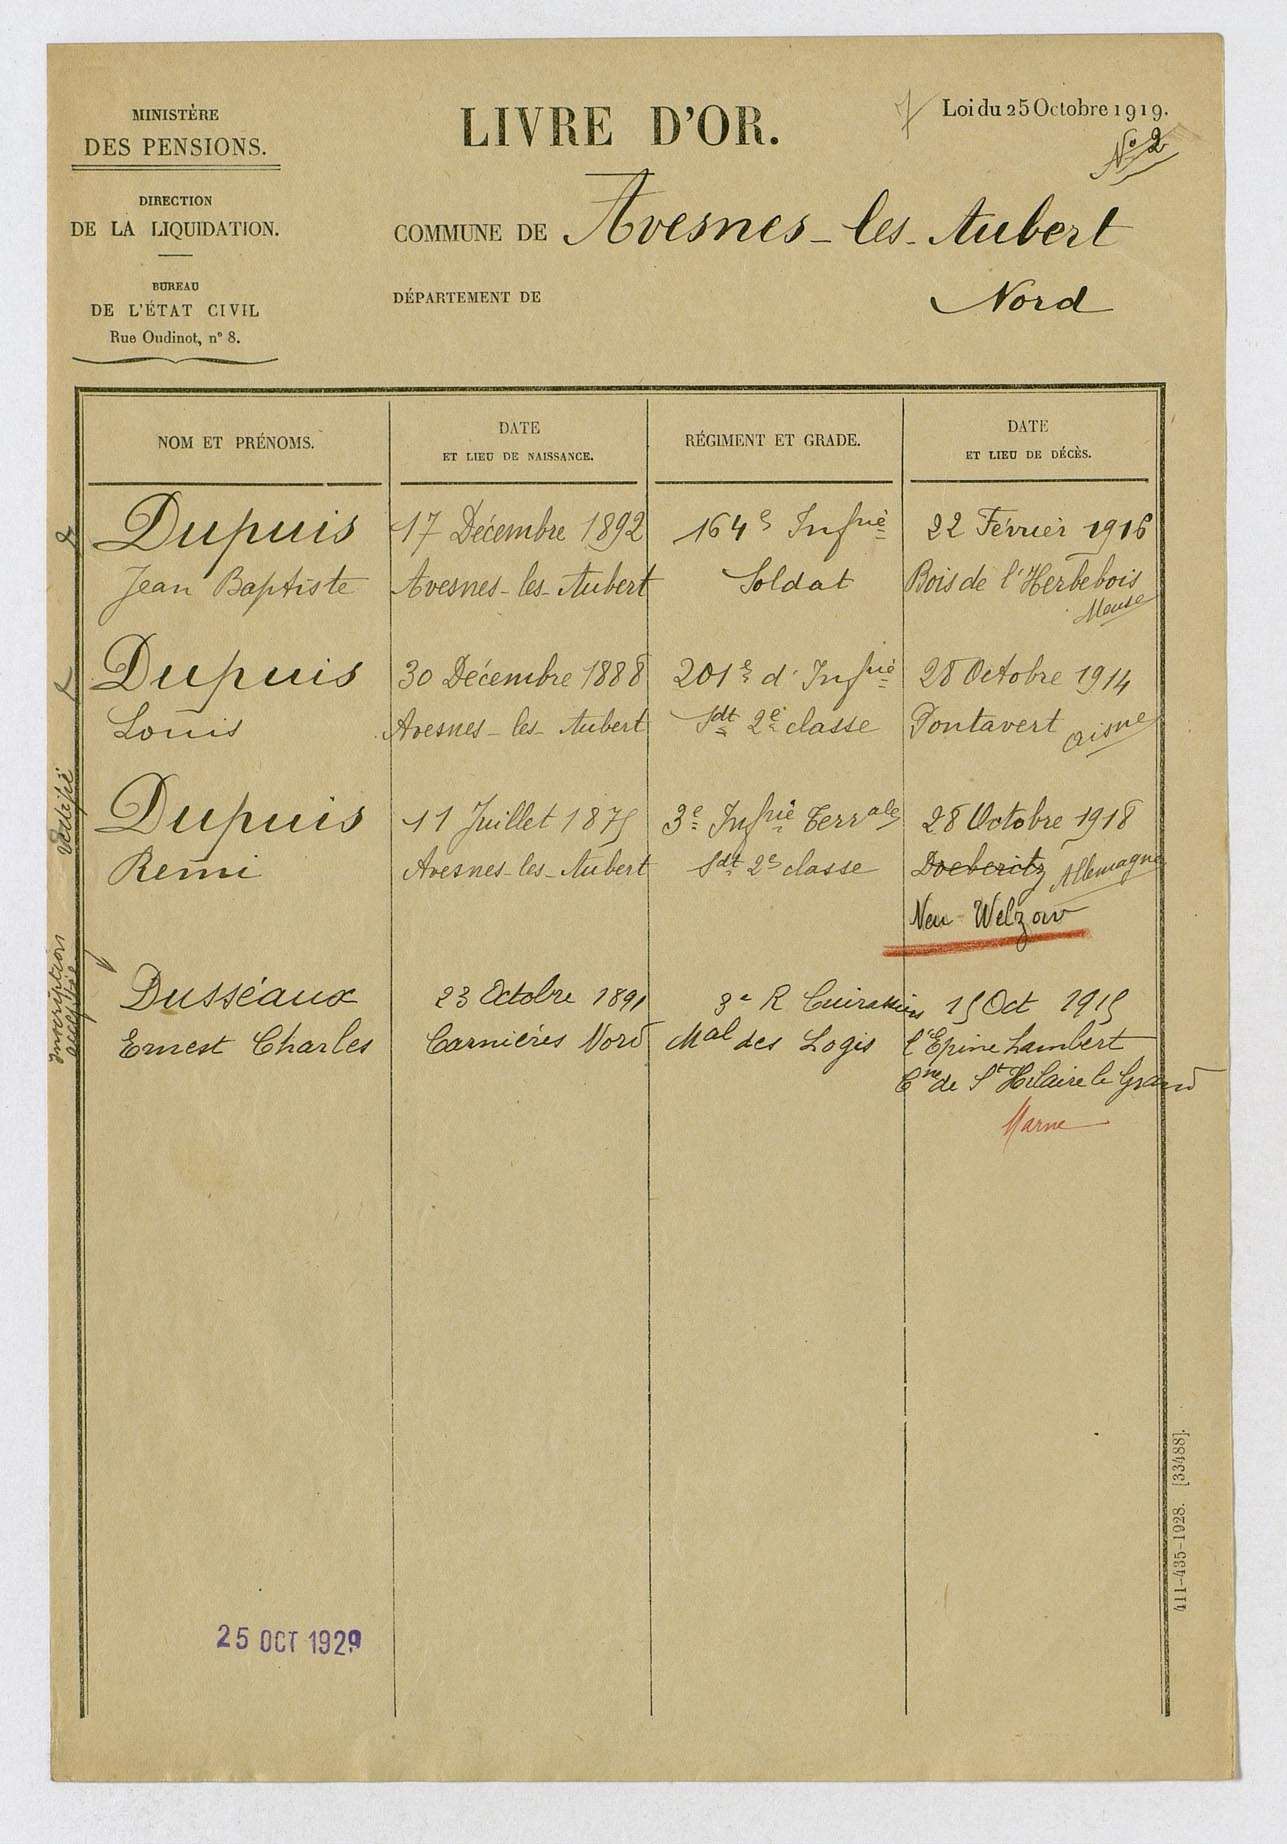 MINISTÈRE
DES PENSIONS.
DIRECTION
DE LA LIQUIDATION.
BUREAU
DE L'ÉTAT CIVIL
Rue Oudinot, n° 8.
LIVRE D'OR.
Loi du 25 Octobre 1919.
N° 2
COMMUNE DE Avesnes-les-Aubert
DÉPARTEMENT DE Nord
NOM ET PRÉNOMS.
DATE
ET LIEU DE NAISSANCE.
RÉGIMENT ET GRADE.
DATE
ET LIEU DE DÉCÈS.
Dupuis 17 Décembre 1892 164e Infrie 22 Février 1916
Jean Baptiste Avesnes-les-Aubert Soldat Bois de l'Herbebois
Meuse
Dupuis 30 Décembre 1888 201e d'Infrie 28 Octobre 1914
Louis Avesnes-les-Aubert Sdt 2e classe Pontavert Aisne
Dupuis 11 Juillet 1875 3e Infrie Terrale 28 Octobre 1918
Remi Avesnes-les-Aubert Sdt 2e classe Doeberitz Allemagne
Neu-Welzow
Dusséaux 23 Octobre 1891 3e R Cuirassiers 15 Oct 1915
Ernest Charles Carnières Nord Mal des Logis l'Epine Lambert
Cne de St Hilaire le Grand
Marne
Inscription
vérifié
25 OCT 1929
411-435-1928. [33488].